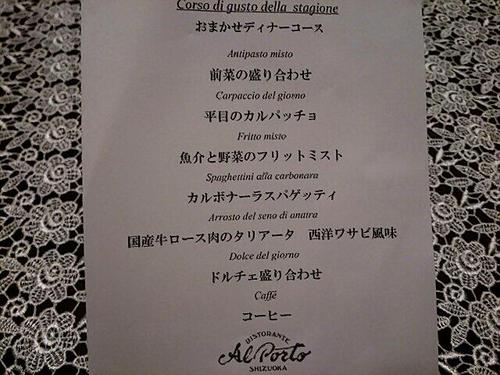 Corso di gusto della stagione
おまかせディナーコース
Antipasto misto
前菜の盛り合わせ
Carpaccio del giorno
平目のカルパッチョ
Fritto misto
魚介と野菜のフリットミスト
Spaghettini alla carbonara
カルボナーラスパゲッティ
Arrosto del seno di anatra
国産牛ロース肉のタリアータ　西洋ワサビ風味
Dolce del giorno
ドルチェ盛り合わせ
Caffé
コーヒー
RISTORANTE
Al Porto
SHIZUOKA